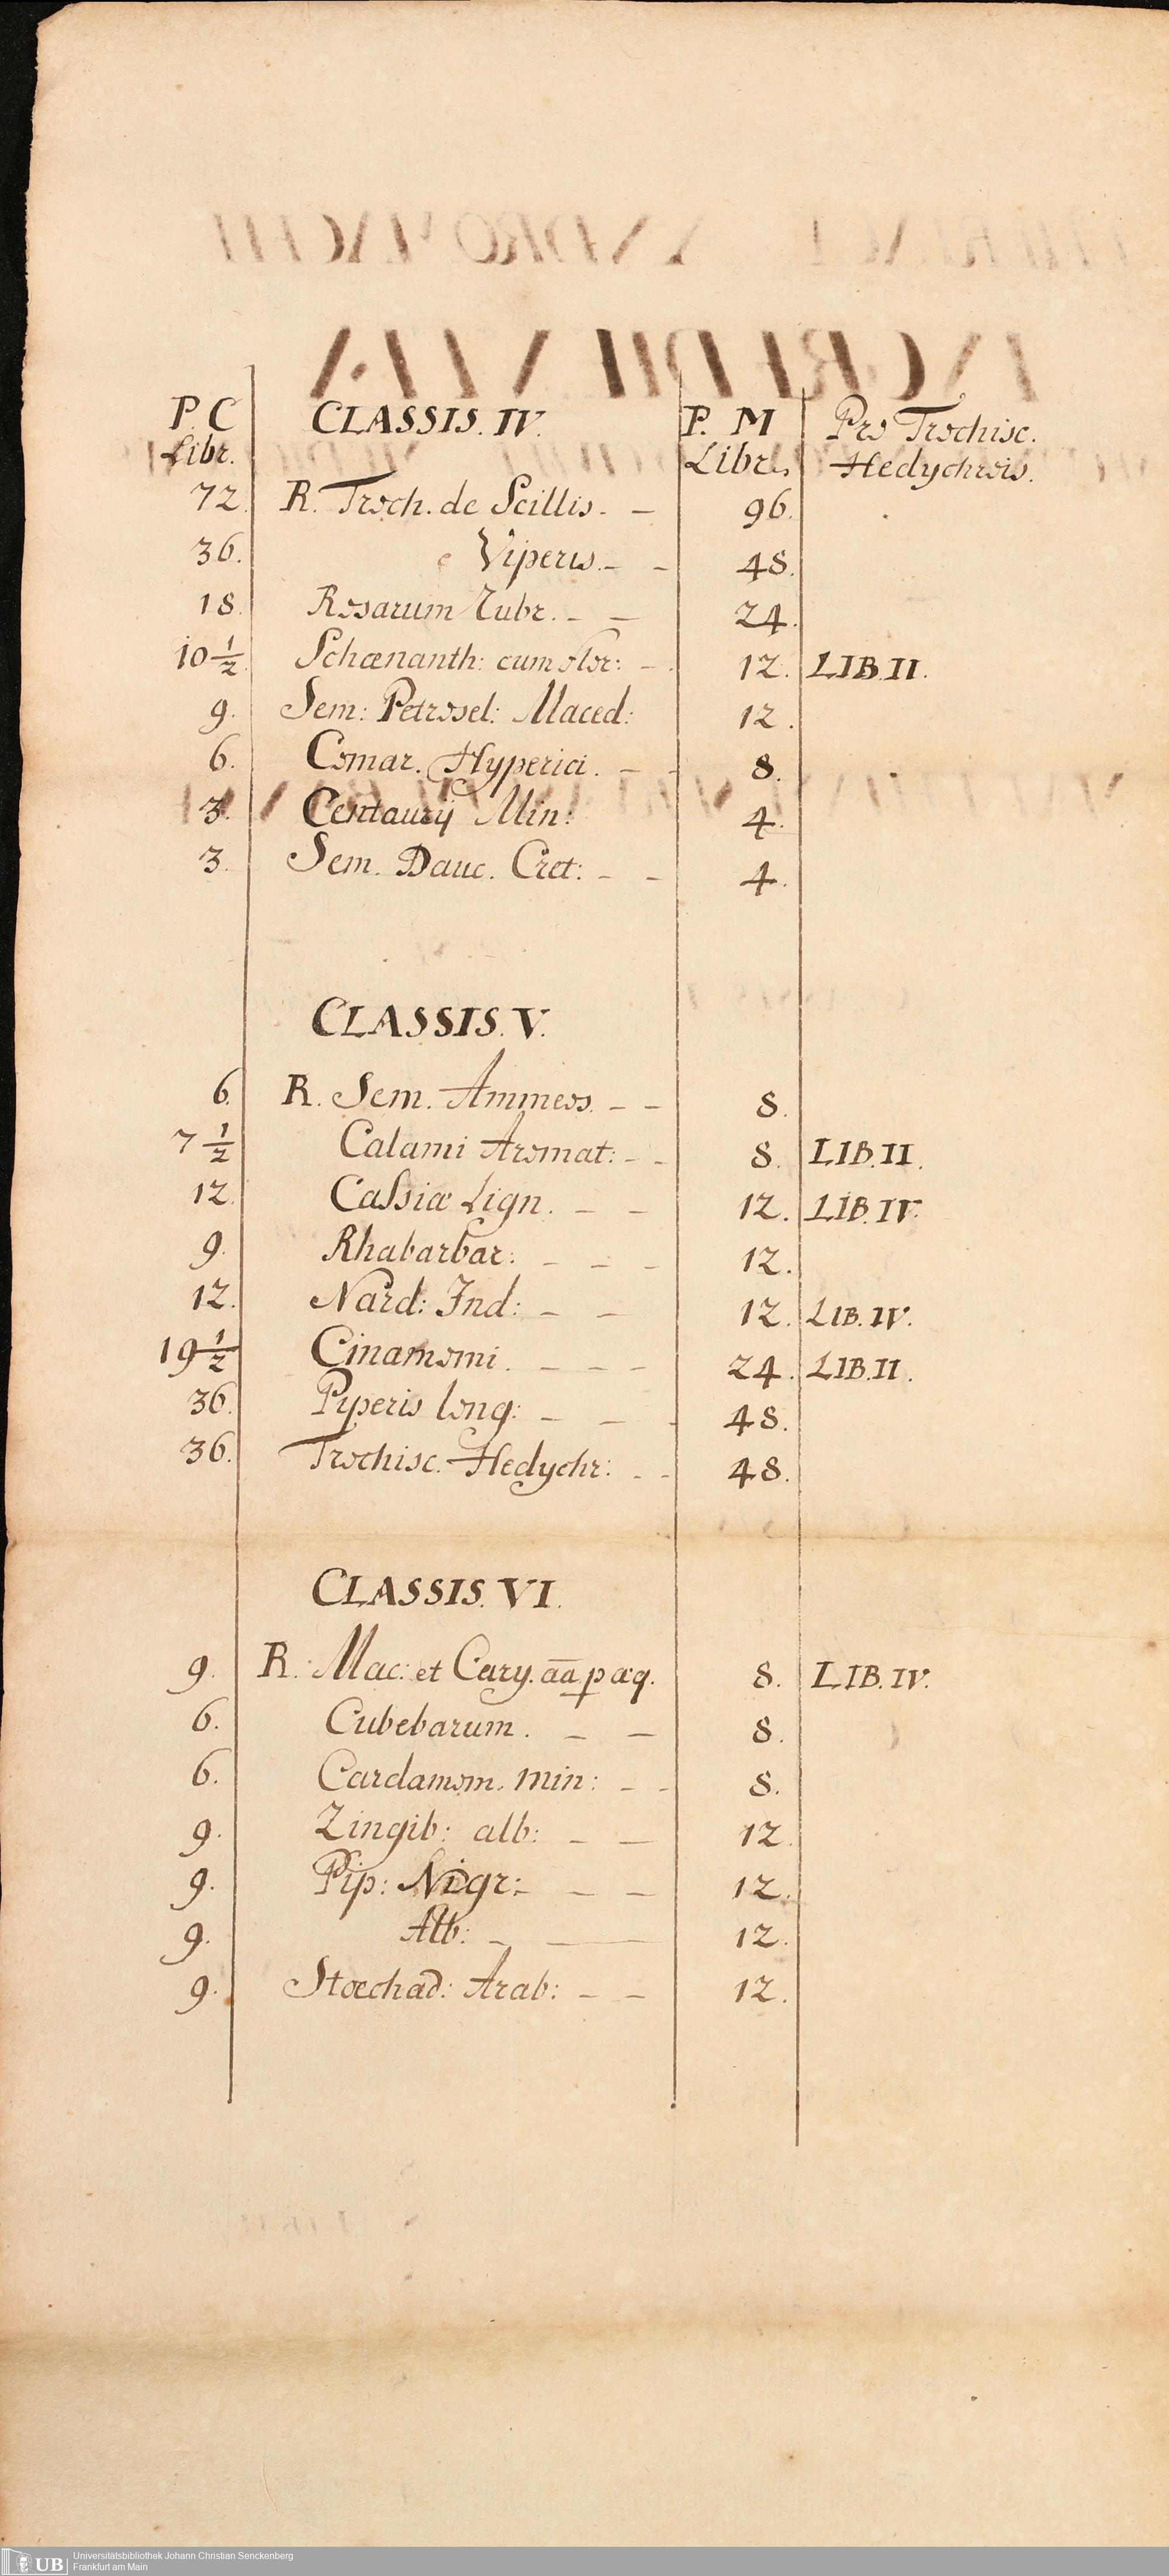 P. C CLASSIS. IV. P. M Pro Trochisc.
Libr. Libr. Hedychrois.
72. R. Troch. de Scillis. - 96.
36. e Viperis. - - 48.
18. Rosarum Rubr. - - 24.
10 1/2. Schœnanth: cum flor: - 12. LIB. II.
9. Sem: Petrosel: Maced: 12.
6. Comar. Hyperici. - - 8.
3. Centaurij Min: 4.
3. Sem. Dauc. Cret: - - 4.
CLASSIS. V.
6. R. Sem. Ammeos. - - 8.
7 1/2 Calami Aromat: - - 8. LIB. II.
12. Cassiæ Lign. - - 12. LIB. IV.
9. Rhabarbar: - - - 12.
12. Nard: Ind: - - 12. LIB. IV.
19 1/2 Cinamomi. - - - 24. LIB. II.
36. Pyperis long: - - - 48.
36. Trochisc. Hedychr: - - 48.
CLASSIS. VI.
9. R. Mac: et Cary. aa p æq. 8. LIB. IV.
6. Cubebarum. - - 8.
6. Cardamom. min: - - 8.
9. Zingib: alb: - - 12.
9. Pip: Nigr: - - - 12.
9. Alb: - - 12.
9. Stœchad: Arab: - - 12.
UB Universitätsbibliothek Johann Christian Senckenberg
Frankfurt am Main